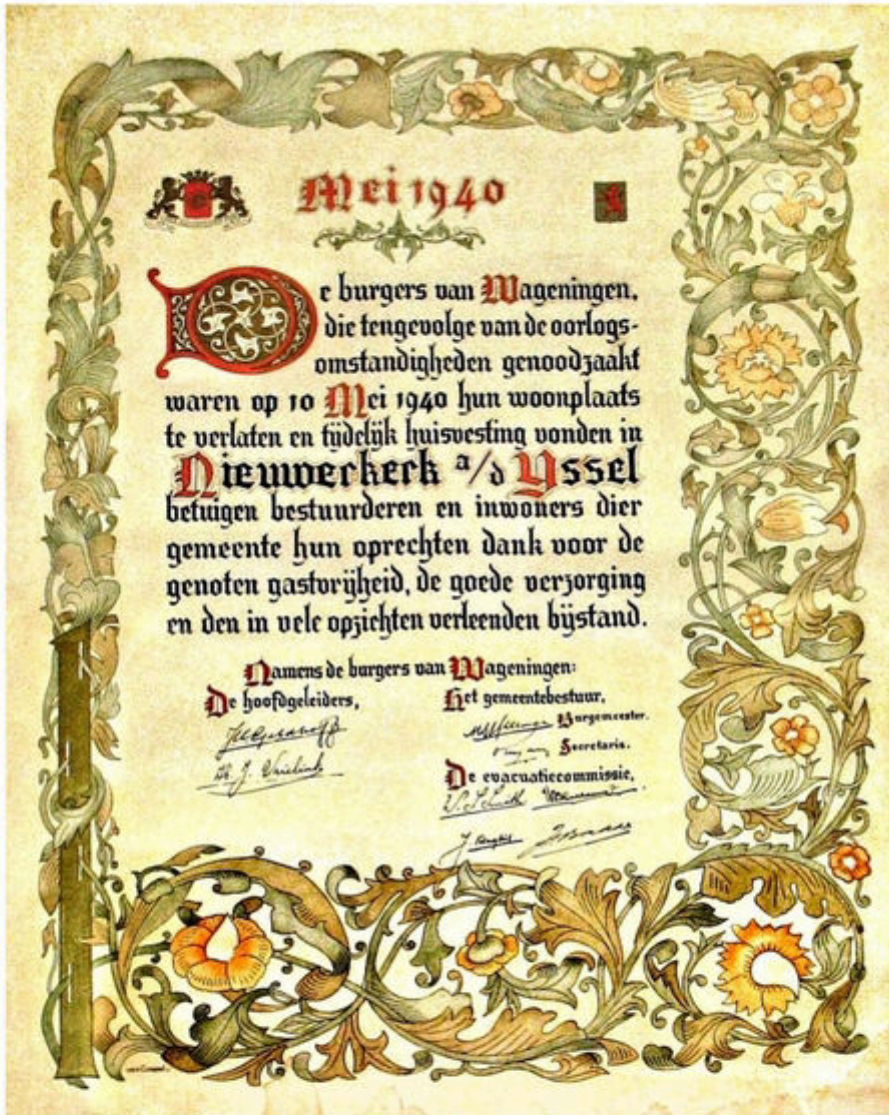 Mei 1940
De burgers van Wageningen,
die tengevolge van de oorlogs-
omstandigheden genoodzaakt
waren op 10 Mei 1940 hun woonplaats
te verlaten en tijdelijk huisvesting vonden in
Nieuwerkerk a/d Yssel
betuigen bestuurderen en inwoners dier
gemeente hun oprechten dank voor de
genoten gastvrijheid, de goede verzorging
en den in vele opzichten verleenden bijstand.
Namens de burgers van Wageningen:
De hoofdgeleiders,
Het gemeentebestuur,
Burgemeester.
Secretaris.
De evacuatiecommissie,